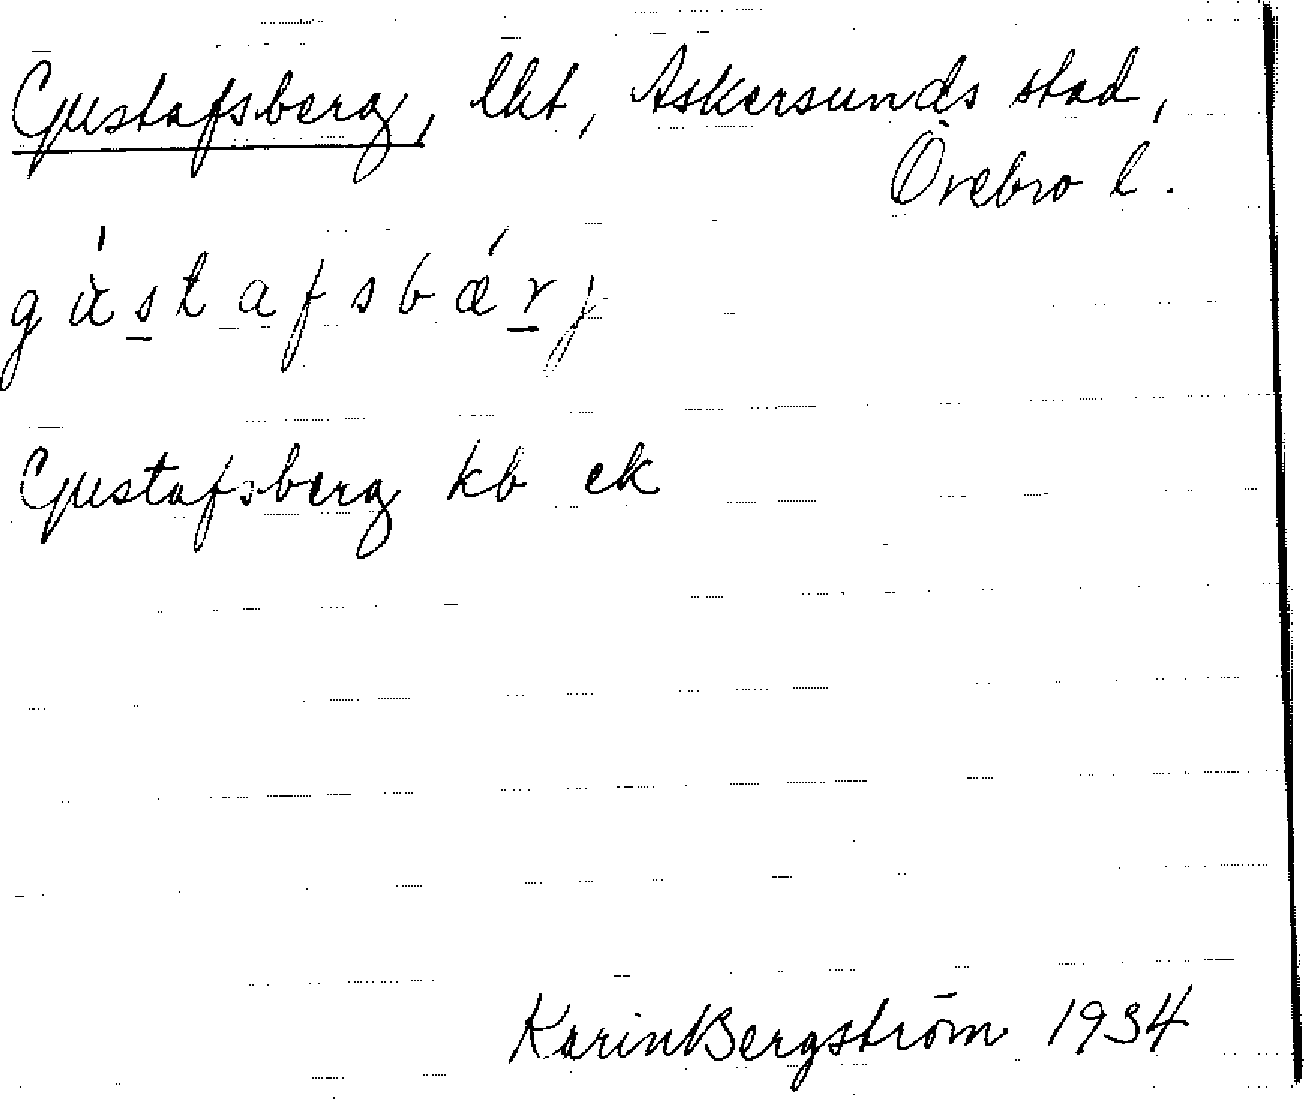 Gustafsberg, lht, Askersunds stad,
Örebro l.
gùstafsbǽrj
Gustafsberg kb ek
Karin Bergström 1934